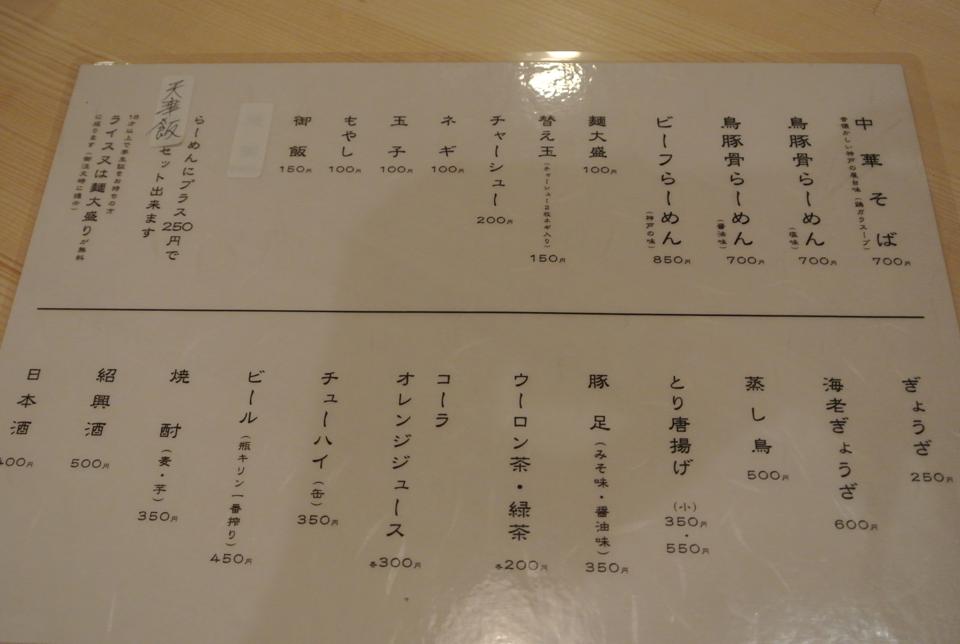 中華そば
昔懐かしい神戸の屋台味(鶏ガラスープ)
700円
鳥豚骨らーめん
(塩味)
700円
鳥豚骨らーめん
(醤油味)
700円
ビーフらーめん
(神戸の味)
850円
麺大盛
100円
替え玉
(チャーシュー2枚ネギ入り)
150円
チャーシュー
200円
ネギ
100円
玉子
100円
もやし
100円
御飯
150円
らーめんにプラス250円で
天津飯
セット出来ます
学生証をお持ちの方
ライス又は麺大盛りが無料
に成ります
ぎょうざ
250円
海老ぎょうざ
600円
蒸し鳥
500円
とり唐揚げ
(小)
350円
・
550円
豚足(みそ味・醤油味)
350円
ウーロン茶・緑茶
各200円
コーラ
オレンジジュース
各300円
チューハイ(缶)
350円
ビール(瓶キリン一番搾り)
450円
焼酎(麦・芋)
350円
紹興酒
500円
日本酒
00円